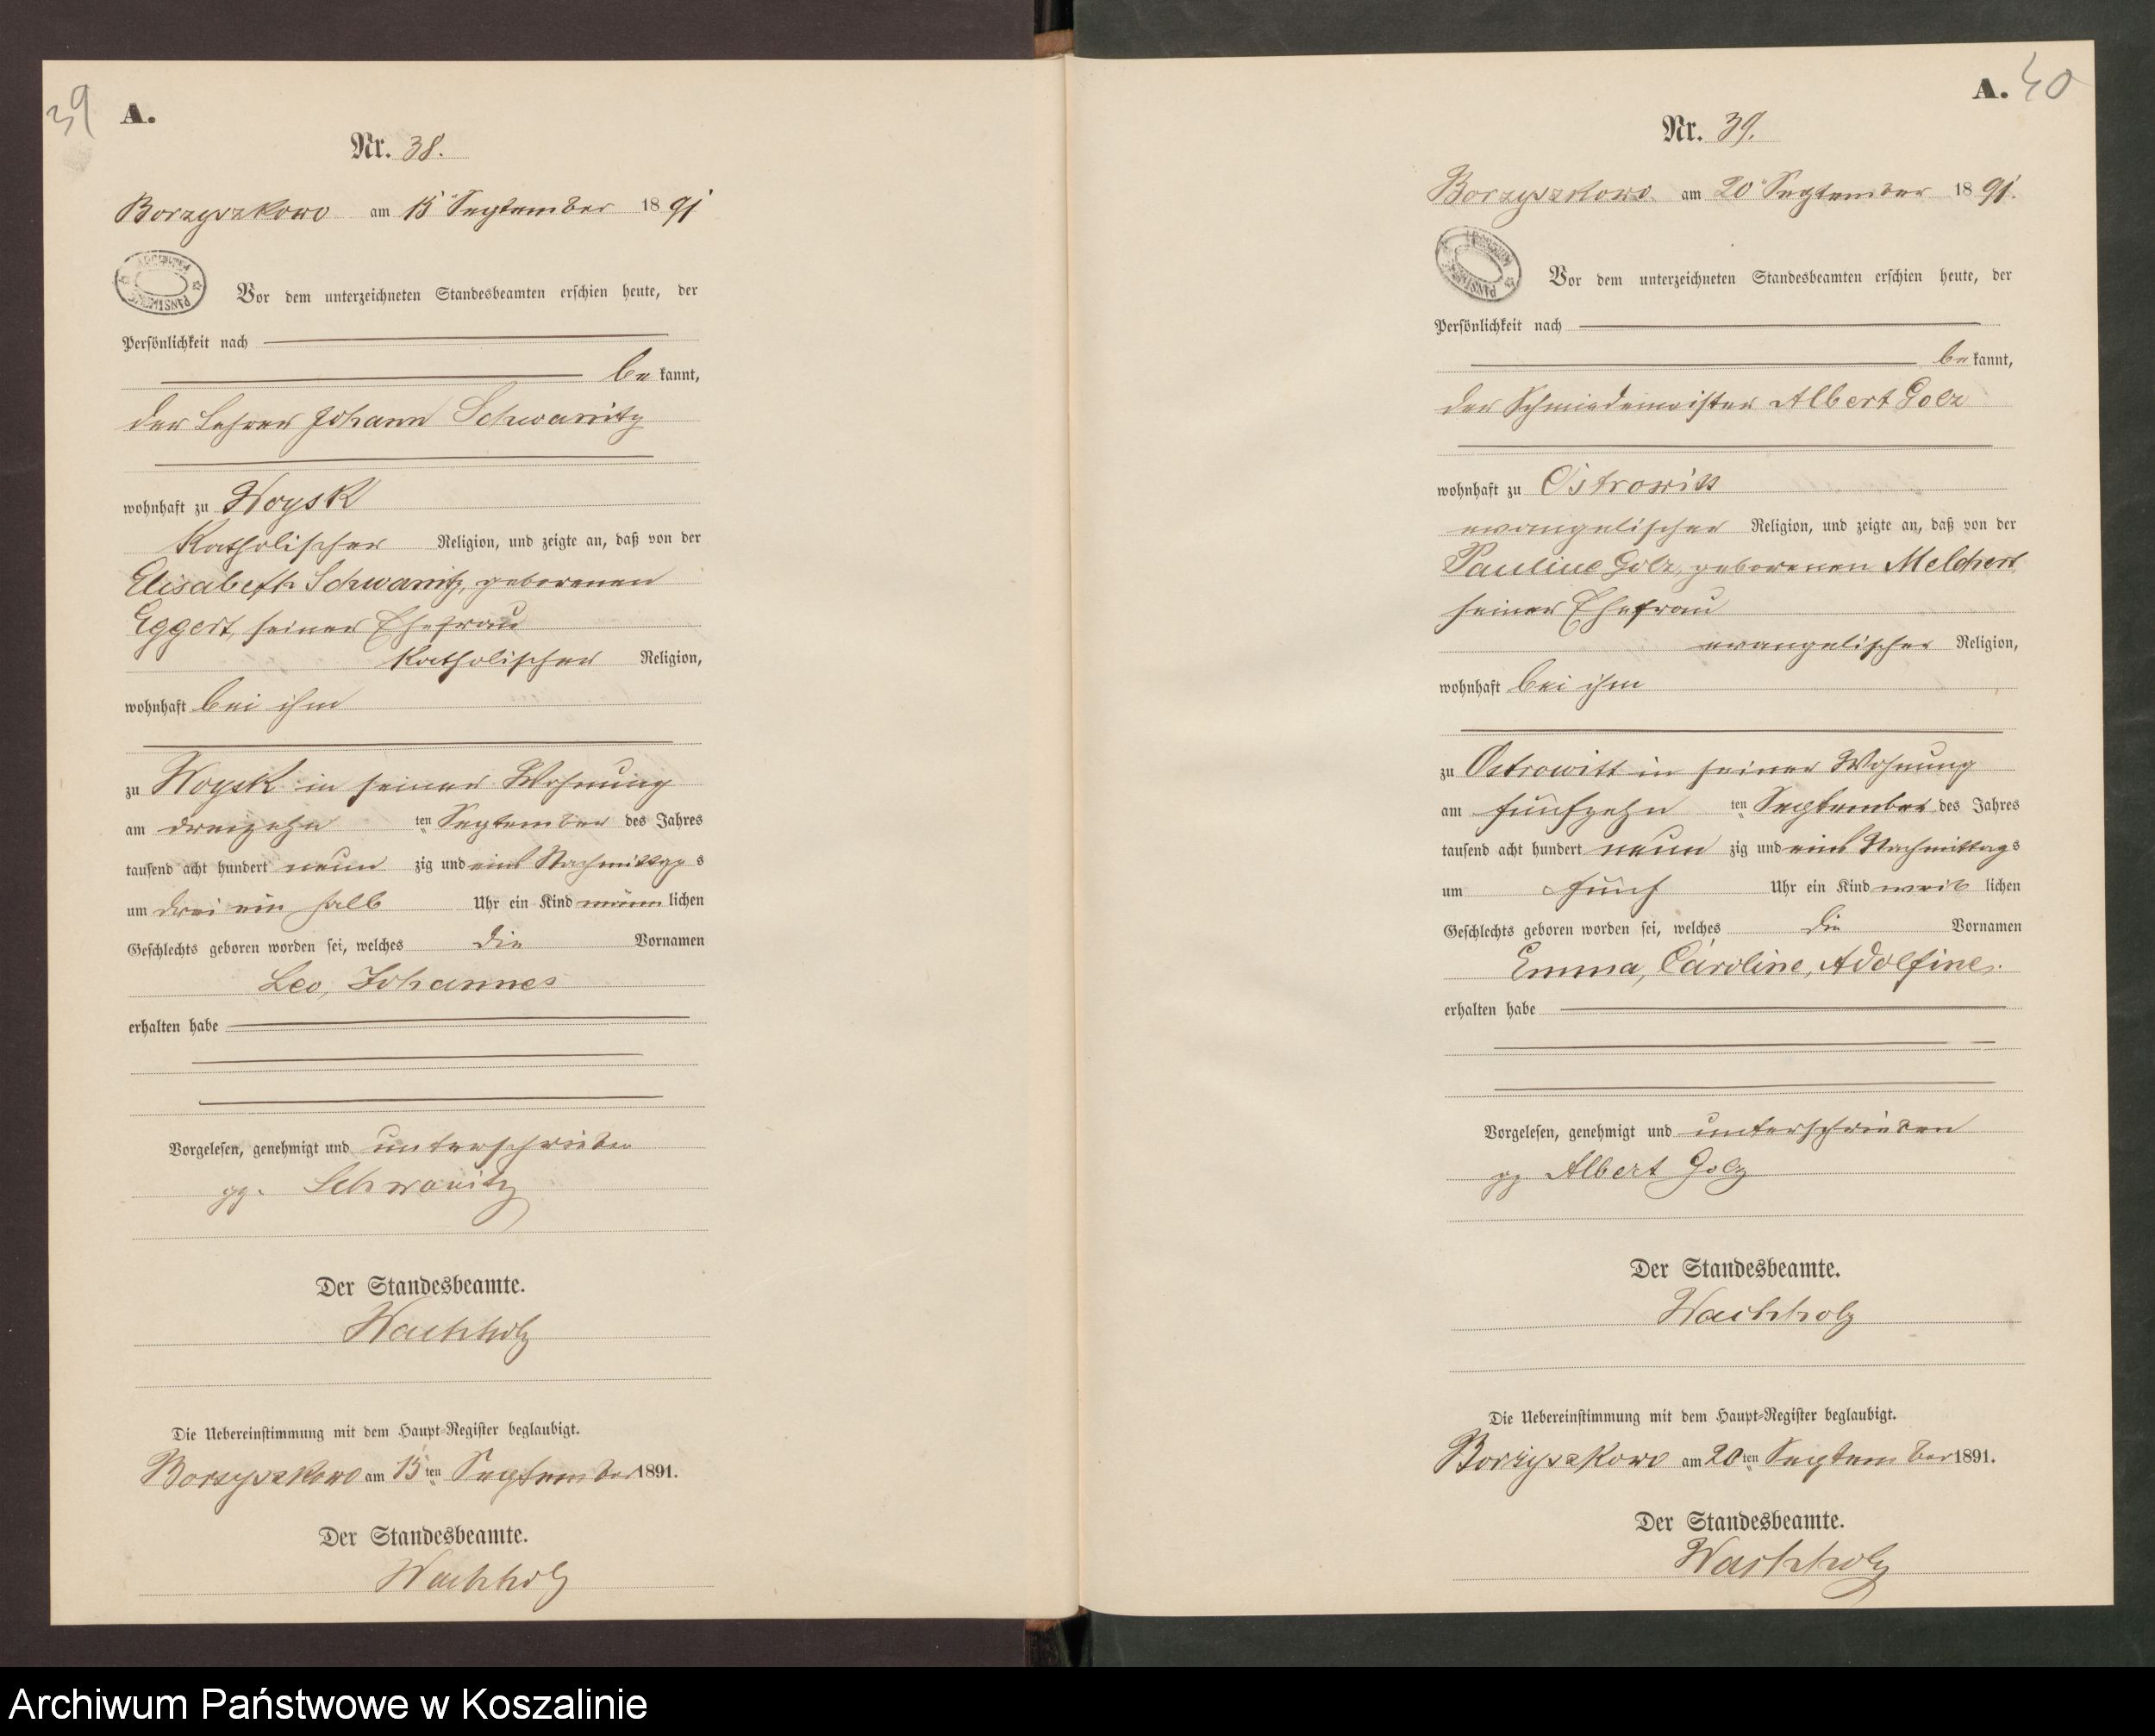 39
A.
Nr. 38.
Borzyszkowo am 15 September 1891
Vor dem unterzeichneten Standesbeamten erschien heute, der
Persönlichkeit nach
bekannt,
der Lehrer Johann Schwanitz
wohnhaft zu Woysk
katholischer Religion, und zeigte an, daß von der
Elisabeth Schwanitz, geborenen
Eggert, seiner Ehefrau
katholischer Religion,
wohnhaft bei ihm
zu Woysk in seiner Wohnung
am dreizehn ten September des Jahres
tausend acht hundert neun zig und eins Nachmittags
um drei ein halb Uhr ein Kind männlichen
Geschlechts geboren worden sei, welches die Vornamen
Leo, Johannes
erhalten habe
Vorgelesen, genehmigt und unterschrieben
gz. Schwanitz
Der Standesbeamte.
Wachholz
Die Uebereinstimmung mit dem Haupt-Register beglaubigt.
Borzyszkowo am 15ten September 1891.
Der Standesbeamte.
Wachholz
A. 40
Nr. 39.
Borzyszkowo am 20 September 1891.
ARCHIWUM PAŃSTWOWE
Vor dem unterzeichneten Standesbeamten erschien heute, der
Persönlichkeit nach
bekannt,
der Schmiedemeister Albert Golz
wohnhaft zu Ostrowitt
evangelischer Religion, und zeigte an, daß von der
Pauline Golz, geborenen Melchert,
seiner Ehefrau
evangelischer Religion,
wohnhaft bei ihm
zu Ostrowitt in seiner Wohnung
am fünfzehn ten September des Jahres
tausend acht hundert neun zig und eins Nachmittags
um fünf Uhr ein Kind weiblichen
Geschlechts geboren worden sei, welches die Vornamen
Emma, Caroline, Adolfine.
erhalten habe
Vorgelesen, genehmigt und unterschrieben
gz. Albert Golz
Der Standesbeamte.
Wachholz
Die Uebereinstimmung mit dem Haupt-Register beglaubigt.
Borzyszkowo am 20ten September 1891.
Der Standesbeamte.
Wachholz
Archiwum Państwowe w Koszalinie